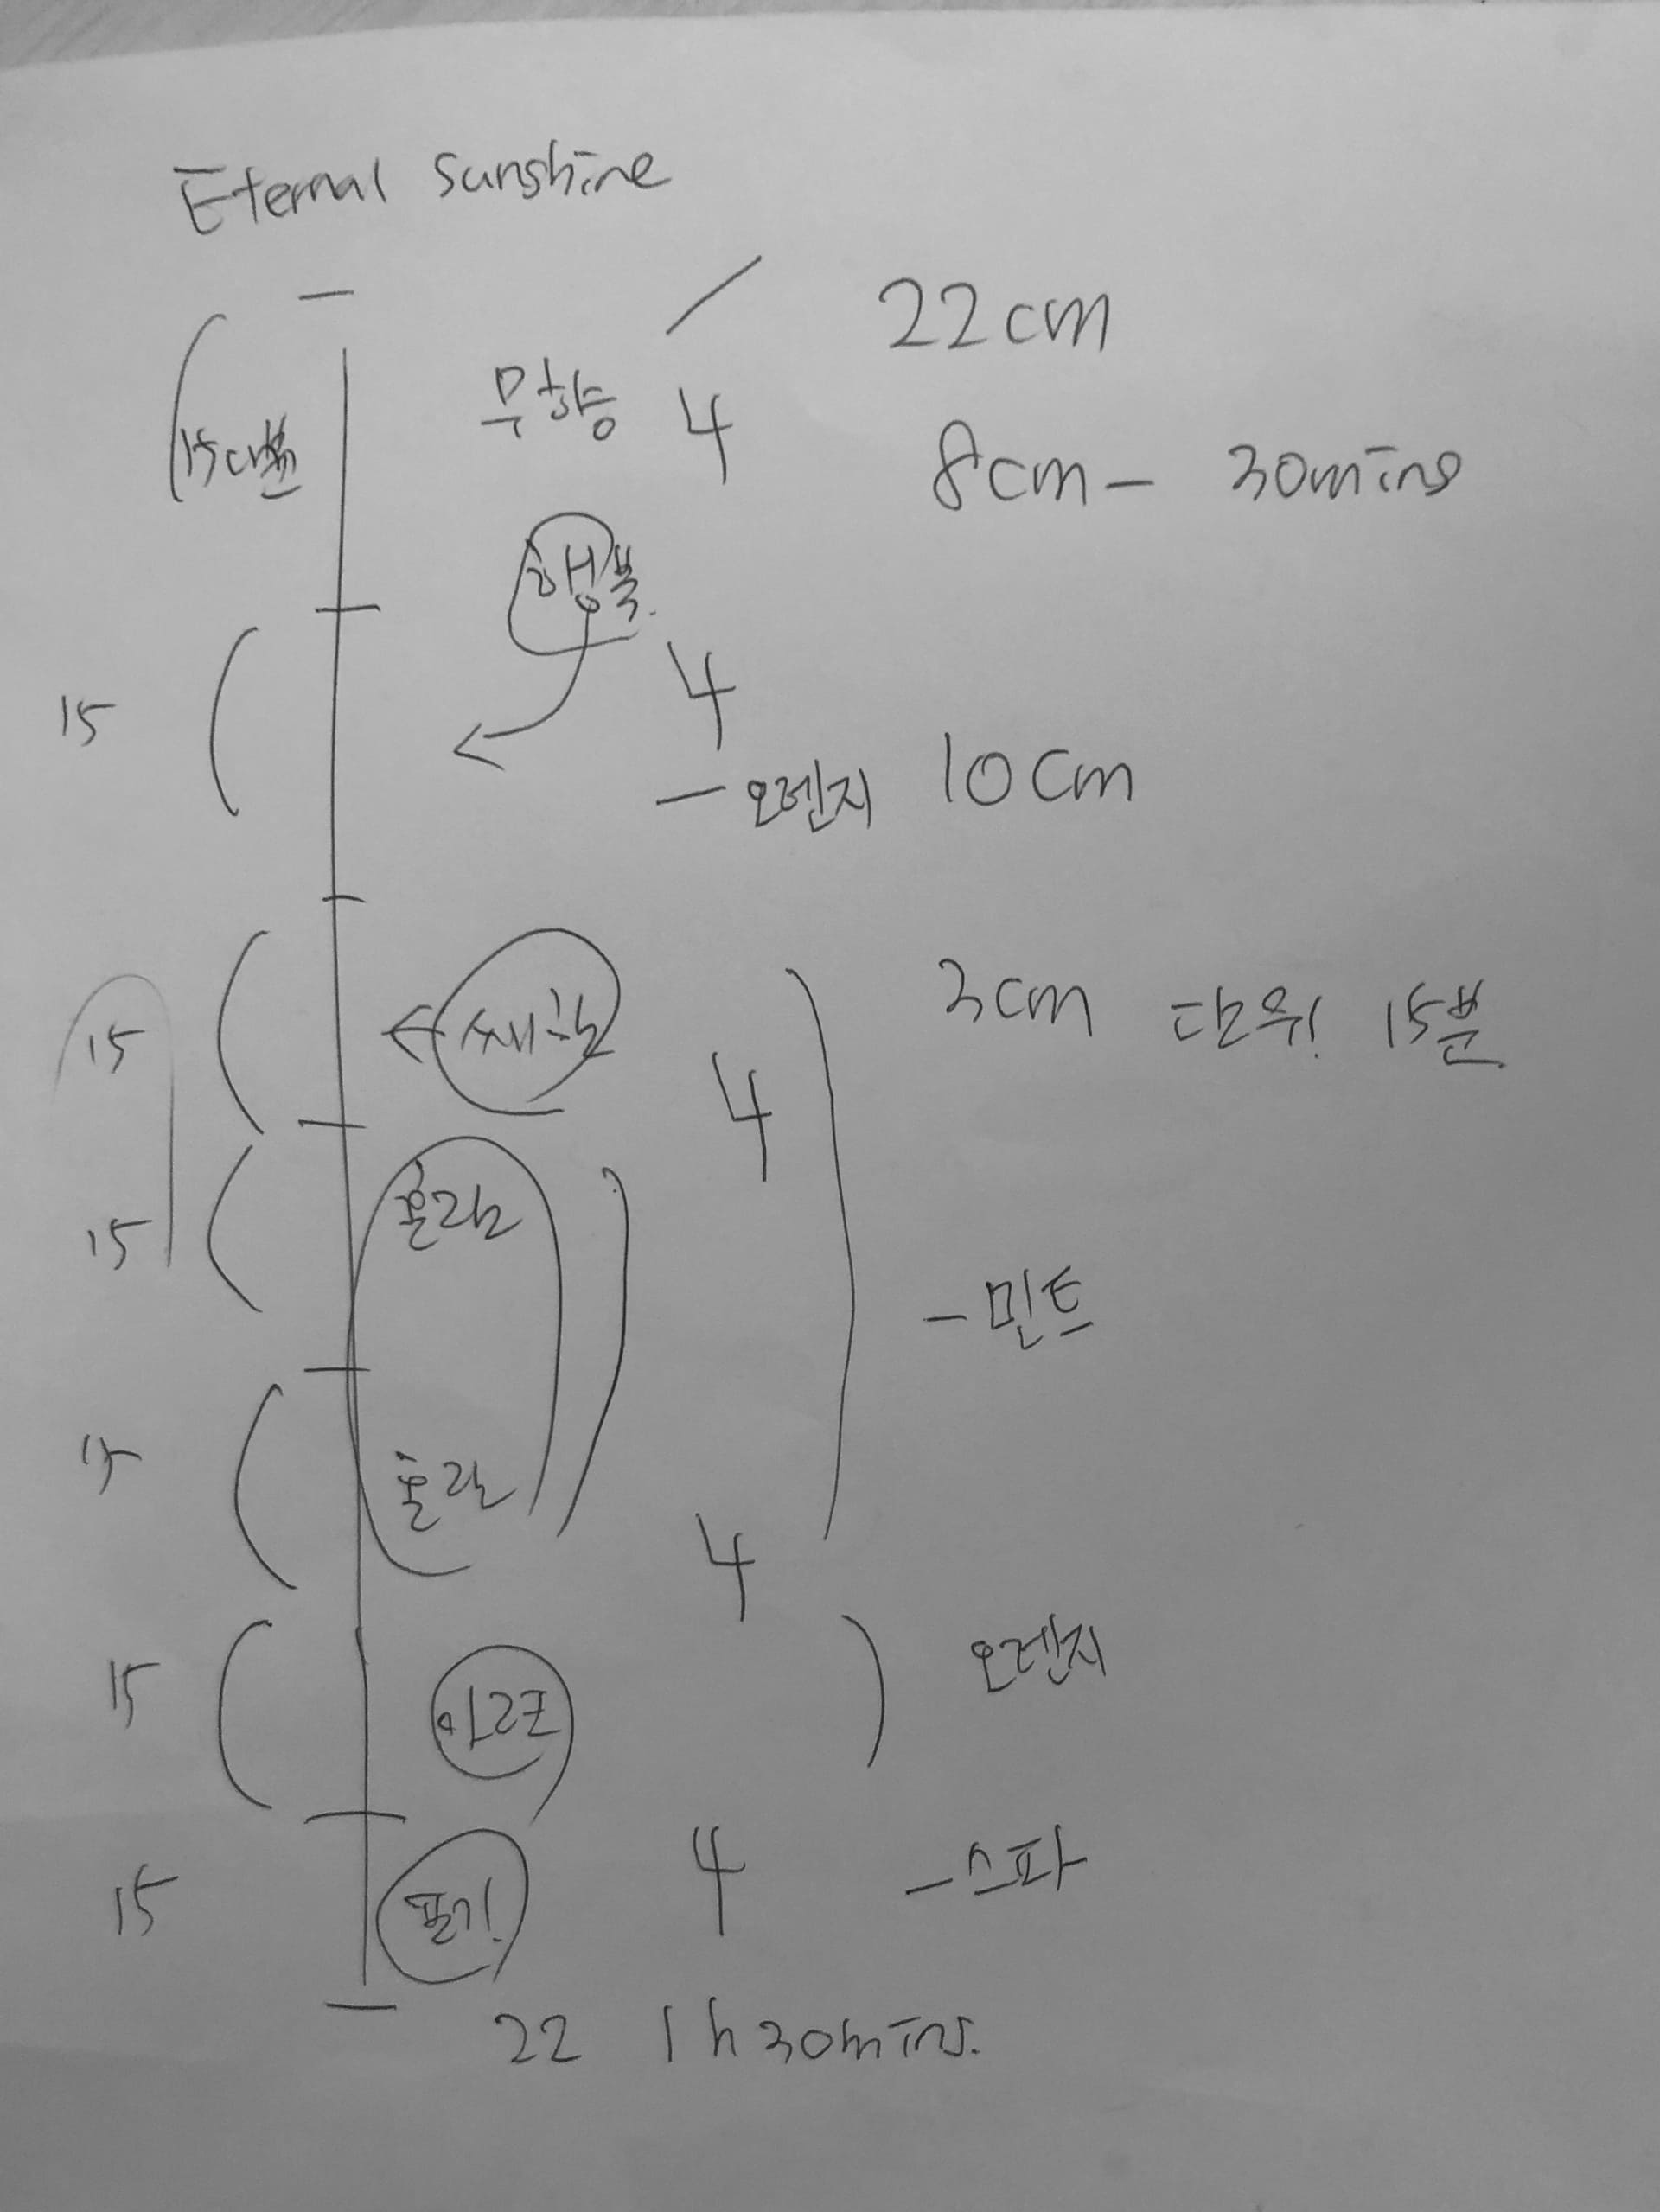 Eternal sunshine
22cm
무향 4
15
8cm - 30mins
행복.
15
4
- 오렌지 10cm
15
4
3cm 단위! 15분
15 혼란
- 민트
15 혼란
4
15
오렌지
15
4 - 스파
22 1h 30mins.